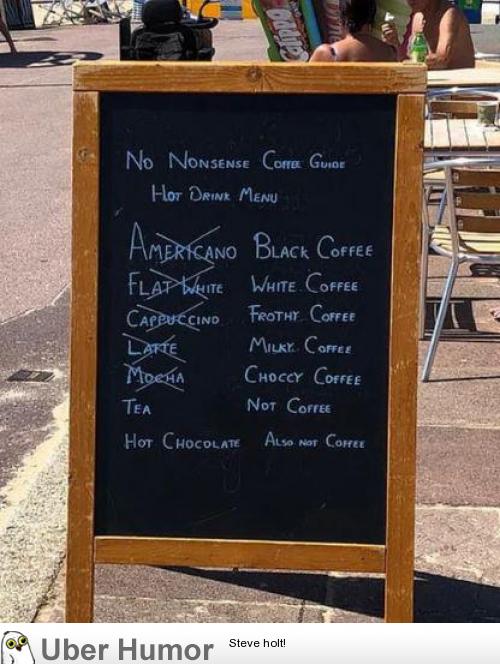 No Nonsense Coffee Guide
Hot Drink Menu
Americano Black Coffee
Flat White White Coffee
Cappuccino Frothy Coffee
Latte Milky Coffee
Mocha Choccy Coffee
Tea Not Coffee
Hot Chocolate Also not Coffee
Uber Humor
Steve holt!